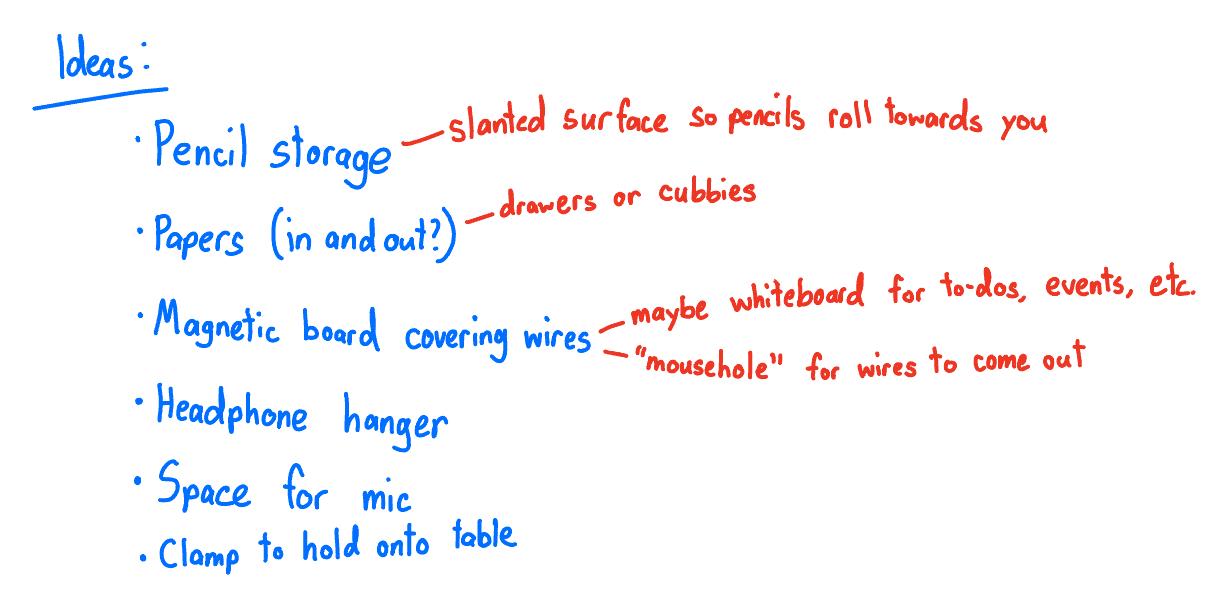 Ideas:
· Pencil storage — slanted surface so pencils roll towards you
· Papers (in and out?) — drawers or cubbies
· Magnetic board covering wires — maybe whiteboard for to-dos, events, etc.
— "mousehole" for wires to come out
· Headphone hanger
· Space for mic
· Clamp to hold onto table